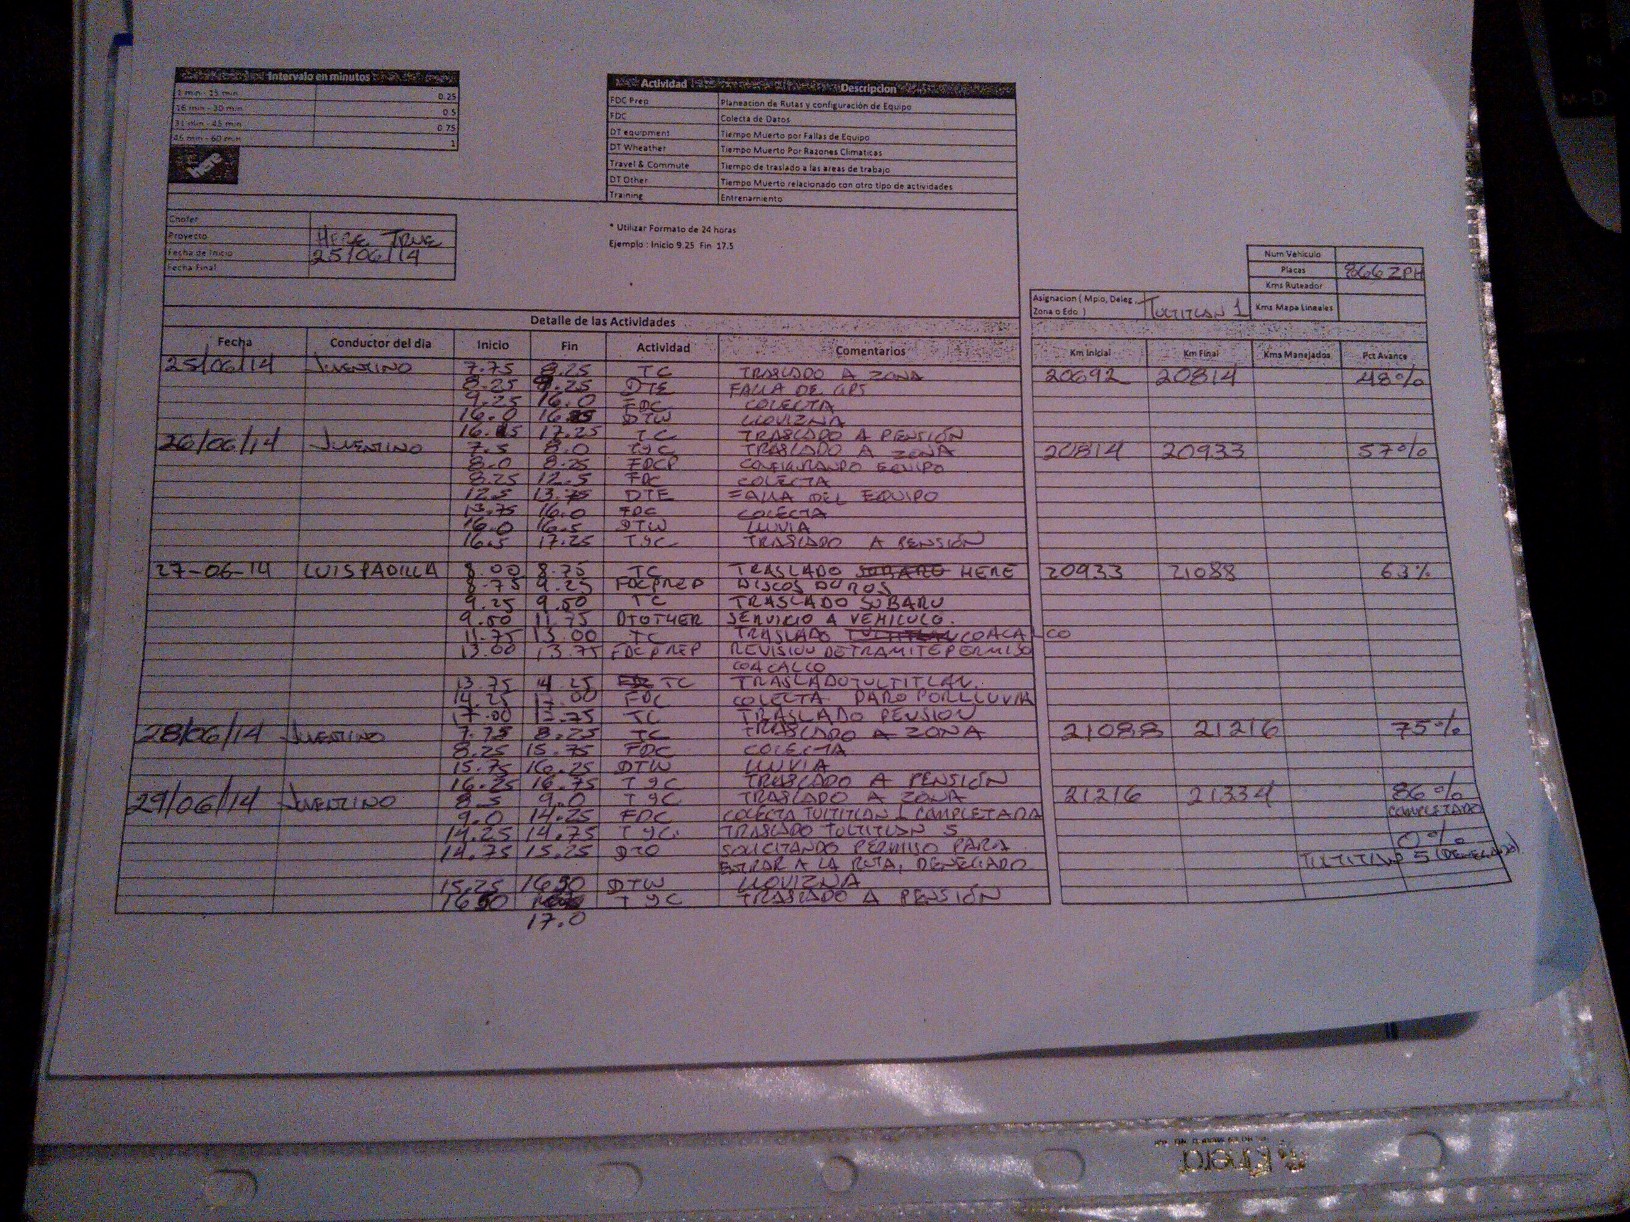 Intervalo en minutos
1 min - 15 min 0.25
16 min - 30 min 0.5
31 min - 45 min 0.75
45 min - 60 min 1
here
Actividad Descripcion
FDC Prep Planeacion de Rutas y configuración de Equipo
FDC Colecta de Datos
DT equipment Tiempo Muerto por Fallas de Equipo
DT Wheather Tiempo Muerto Por Razones Climaticas
Travel & Commute Tiempo de traslado a las areas de trabajo
DT Other Tiempo Muerto relacionado con otro tipo de actividades
Training Entrenamiento
Chofer
Proyecto HERE TRUE
Fecha de Inicio 25/06/14
Fecha Final
* Utilizar Formato de 24 horas
Ejemplo : Inicio 9.25 Fin 17.5
Num Vehiculo
Placas 866 ZPH
Kms Ruteador
Asignacion ( Mpio, Deleg, Zona o Edo ) TULTITLAN 1 Kms Mapa Lineales
Detalle de las Actividades
Fecha Conductor del dia Inicio Fin Actividad Comentarios Km Inicial Km Final Kms Manejados Pct Avance
25/06/14 JUVENTINO 7.75 8.25 TC TRASLADO A ZONA 20692 20814 48%
8.25 9.25 DTE FALLA DE GPS
9.25 16.0 FDC COLECTA
16.0 DTW LLOVIZNA
17.25 TC TRASLADO A PENSIÓN
26/06/14 JUVENTINO 7.5 8.0 TyC TRASLADO A ZONA 20814 20933 57%
8.0 8.25 FDCP CONFIGURANDO EQUIPO
8.25 12.5 FDC COLECTA
12.5 13.75 DTE FALLA DEL EQUIPO
13.75 16.0 FDC COLECTA
16.0 16.5 DTW LLUVIA
16.5 17.25 TyC TRASLADO A PENSIÓN
27-06-14 LUIS PADILLA 8.00 8.75 TC TRASLADO SUBARU HERE 20933 21088 63%
8.75 9.25 FDCPREP DISCOS DUROS
9.25 9.50 TC TRASLADO SUBARU
9.50 11.75 DTOTHER SERVICIO A VEHICULO.
11.75 13.00 TC TRASLADO TULTITLAN COACALCO
13.00 13.75 FDCPREP REVISION DE TRAMITE PERMISO
COACALCO
13.75 14.25 TC TRASLADO TULTITLAN.
14.25 17.00 FDC COLECTA PARO POR LLUVIA
17.00 17.75 TC TRASLADO PENSION
28/06/14 JUVENTINO 7.75 8.25 TC TRASLADO A ZONA 21088 21216 75%
8.25 15.75 FDC COLECTA
15.75 16.25 DTW LLUVIA
16.25 16.75 TyC TRASLADO A PENSIÓN
29/06/14 JUVENTINO 8.5 9.0 TyC TRASLADO A ZONA 21216 21334 86%
9.0 14.25 FDC COLECTA TULTITLAN 1 COMPLETADA COMPLETADO
14.25 14.75 TyC. TRASLADO TULTITLAN 5 0%
14.75 15.25 DTO SOLICITANDO PERMISO PARA TULTITLAN 5 (DENEGADO)
ENTRAR A LA RUTA, DENEGADO
15.25 16.50 DTW LLOVIZNA
16.50 TyC TRASLADO A PENSIÓN
17.0